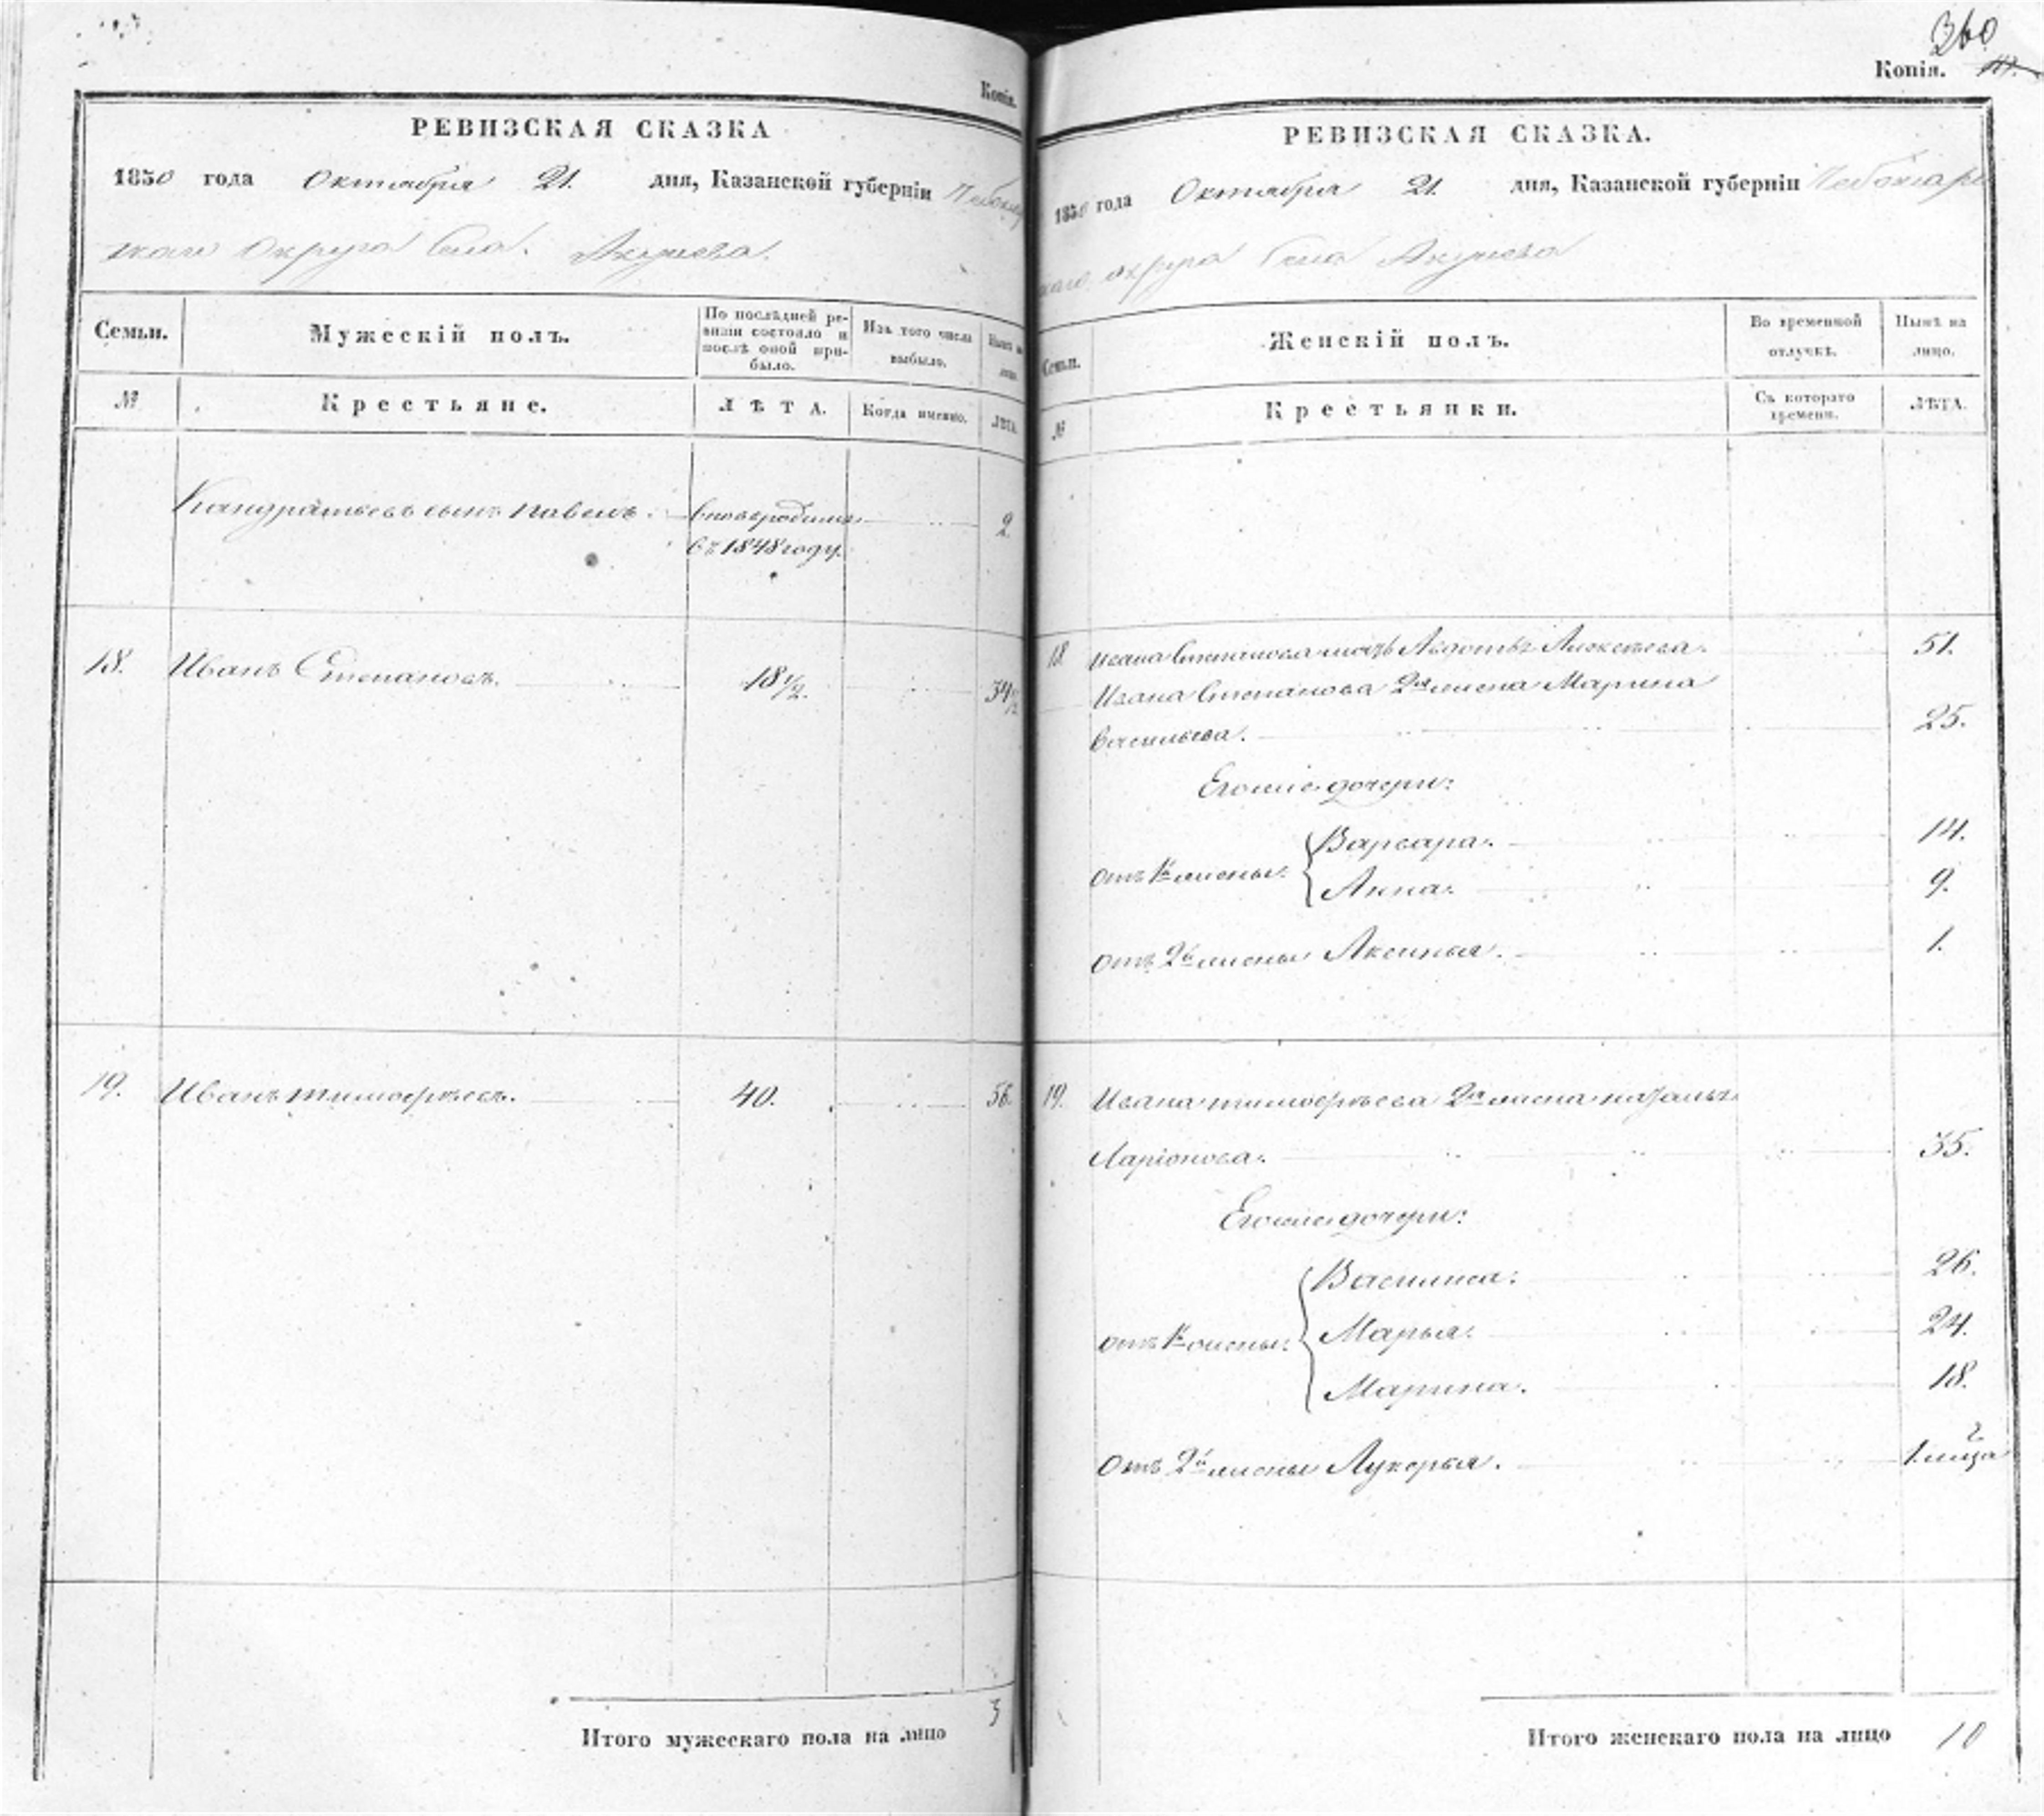 Копія.
РЕВИЗСКАЯ СКАЗКА
1850 года Октября 21. дня, Казанской губерніи Чебоксар
скаго Округа Села. Акулева.
Семьи.
Мужескій полъ.
По послѣдней ре-
визіи состояло и
послѣ оной при-
было.
Изъ того числа
выбыло.
Нынѣ на
лицо.
№
Крестьяне.
ЛѢТА.
Когда именно.
ЛѢТА.
Кандратьевъ сынъ павелъ. вновьродился 2.
въ 1848 году.
18. Иванъ Степановъ. 18 1/2. 34 1/2
19. Иванъ тимофѣевъ. 40. 56.
Итого мужескаго пола на лицо 3
360
Копія.
РЕВИЗСКАЯ СКАЗКА.
1850 года Октября 21. дня, Казанской губерніи Чебоксар
скаго округа Села Акулева
Семьи.
Женскій полъ.
Во временной
отлучкѣ.
Нынѣ на
лицо.
№
Крестьянки.
Съ котораго
времени.
ЛѢТА.
18. Ивана Степанова мать Авдотья Алексѣева. 51.
Ивана Степанова 2я жена Марина
Васильева. 25.
Егоже дочери:
Варвара. 14.
отъ 1й жены:
Анна. 9.
отъ 2й жены Аксинья. 1.
19. Ивана тимофѣева 2я жена наталья
Ларіонова. 35.
Егоже дочери:
Василиса. 26.
отъ 1й жены: Марья. 24.
Марина. 18.
отъ 2й жены Лукерья. 1.
Итого женскаго пола на лицо 10